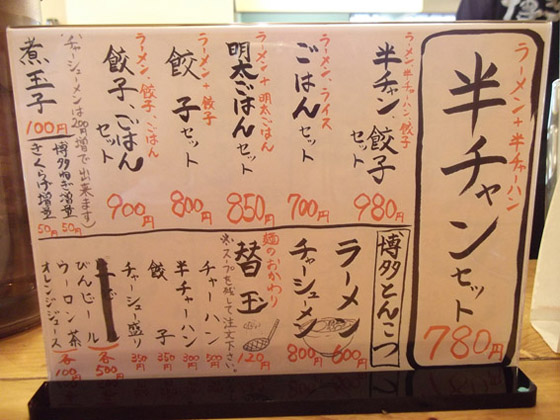 ラーメン+半チャーハン
半チャンセット
780円
ラーメン、半チャーハン、餃子
半チャン餃子セット
980円
ラーメン、ライス
ごはんセット
700円
ラーメン+明太ごはん
明太ごはんセット
850円
ラーメン+餃子
餃子セット
800円
ラーメン、餃子、ごはん
餃子、ごはんセット
900円
(チャーシューメンは200円増で出来ます)
煮玉子
100円
博多ねぎ増量 50円
きくらげ増量 50円
博多とんこつ
ラーメン 600円
チャーシューメン 800円
麺のおかわり
替玉 120円
※スープを残して注文下さい。
チャーハン 500円
半チャーハン 300円
餃子 350円
チャーシュー盛り 350円
びんビール 各500円
ウーロン茶
オレンジジュース 各100円